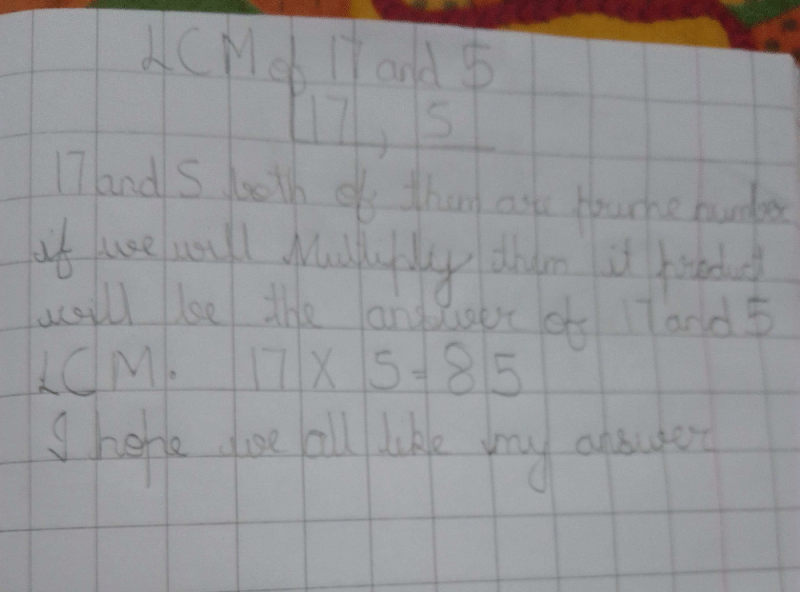 LCM of 17 and 5
17, 5
17 and 5 both of them are prime number
if we will Multiply them it product
will be the answer of 17 and 5
LCM. 17 X 5 = 85
I hope we all like my answer